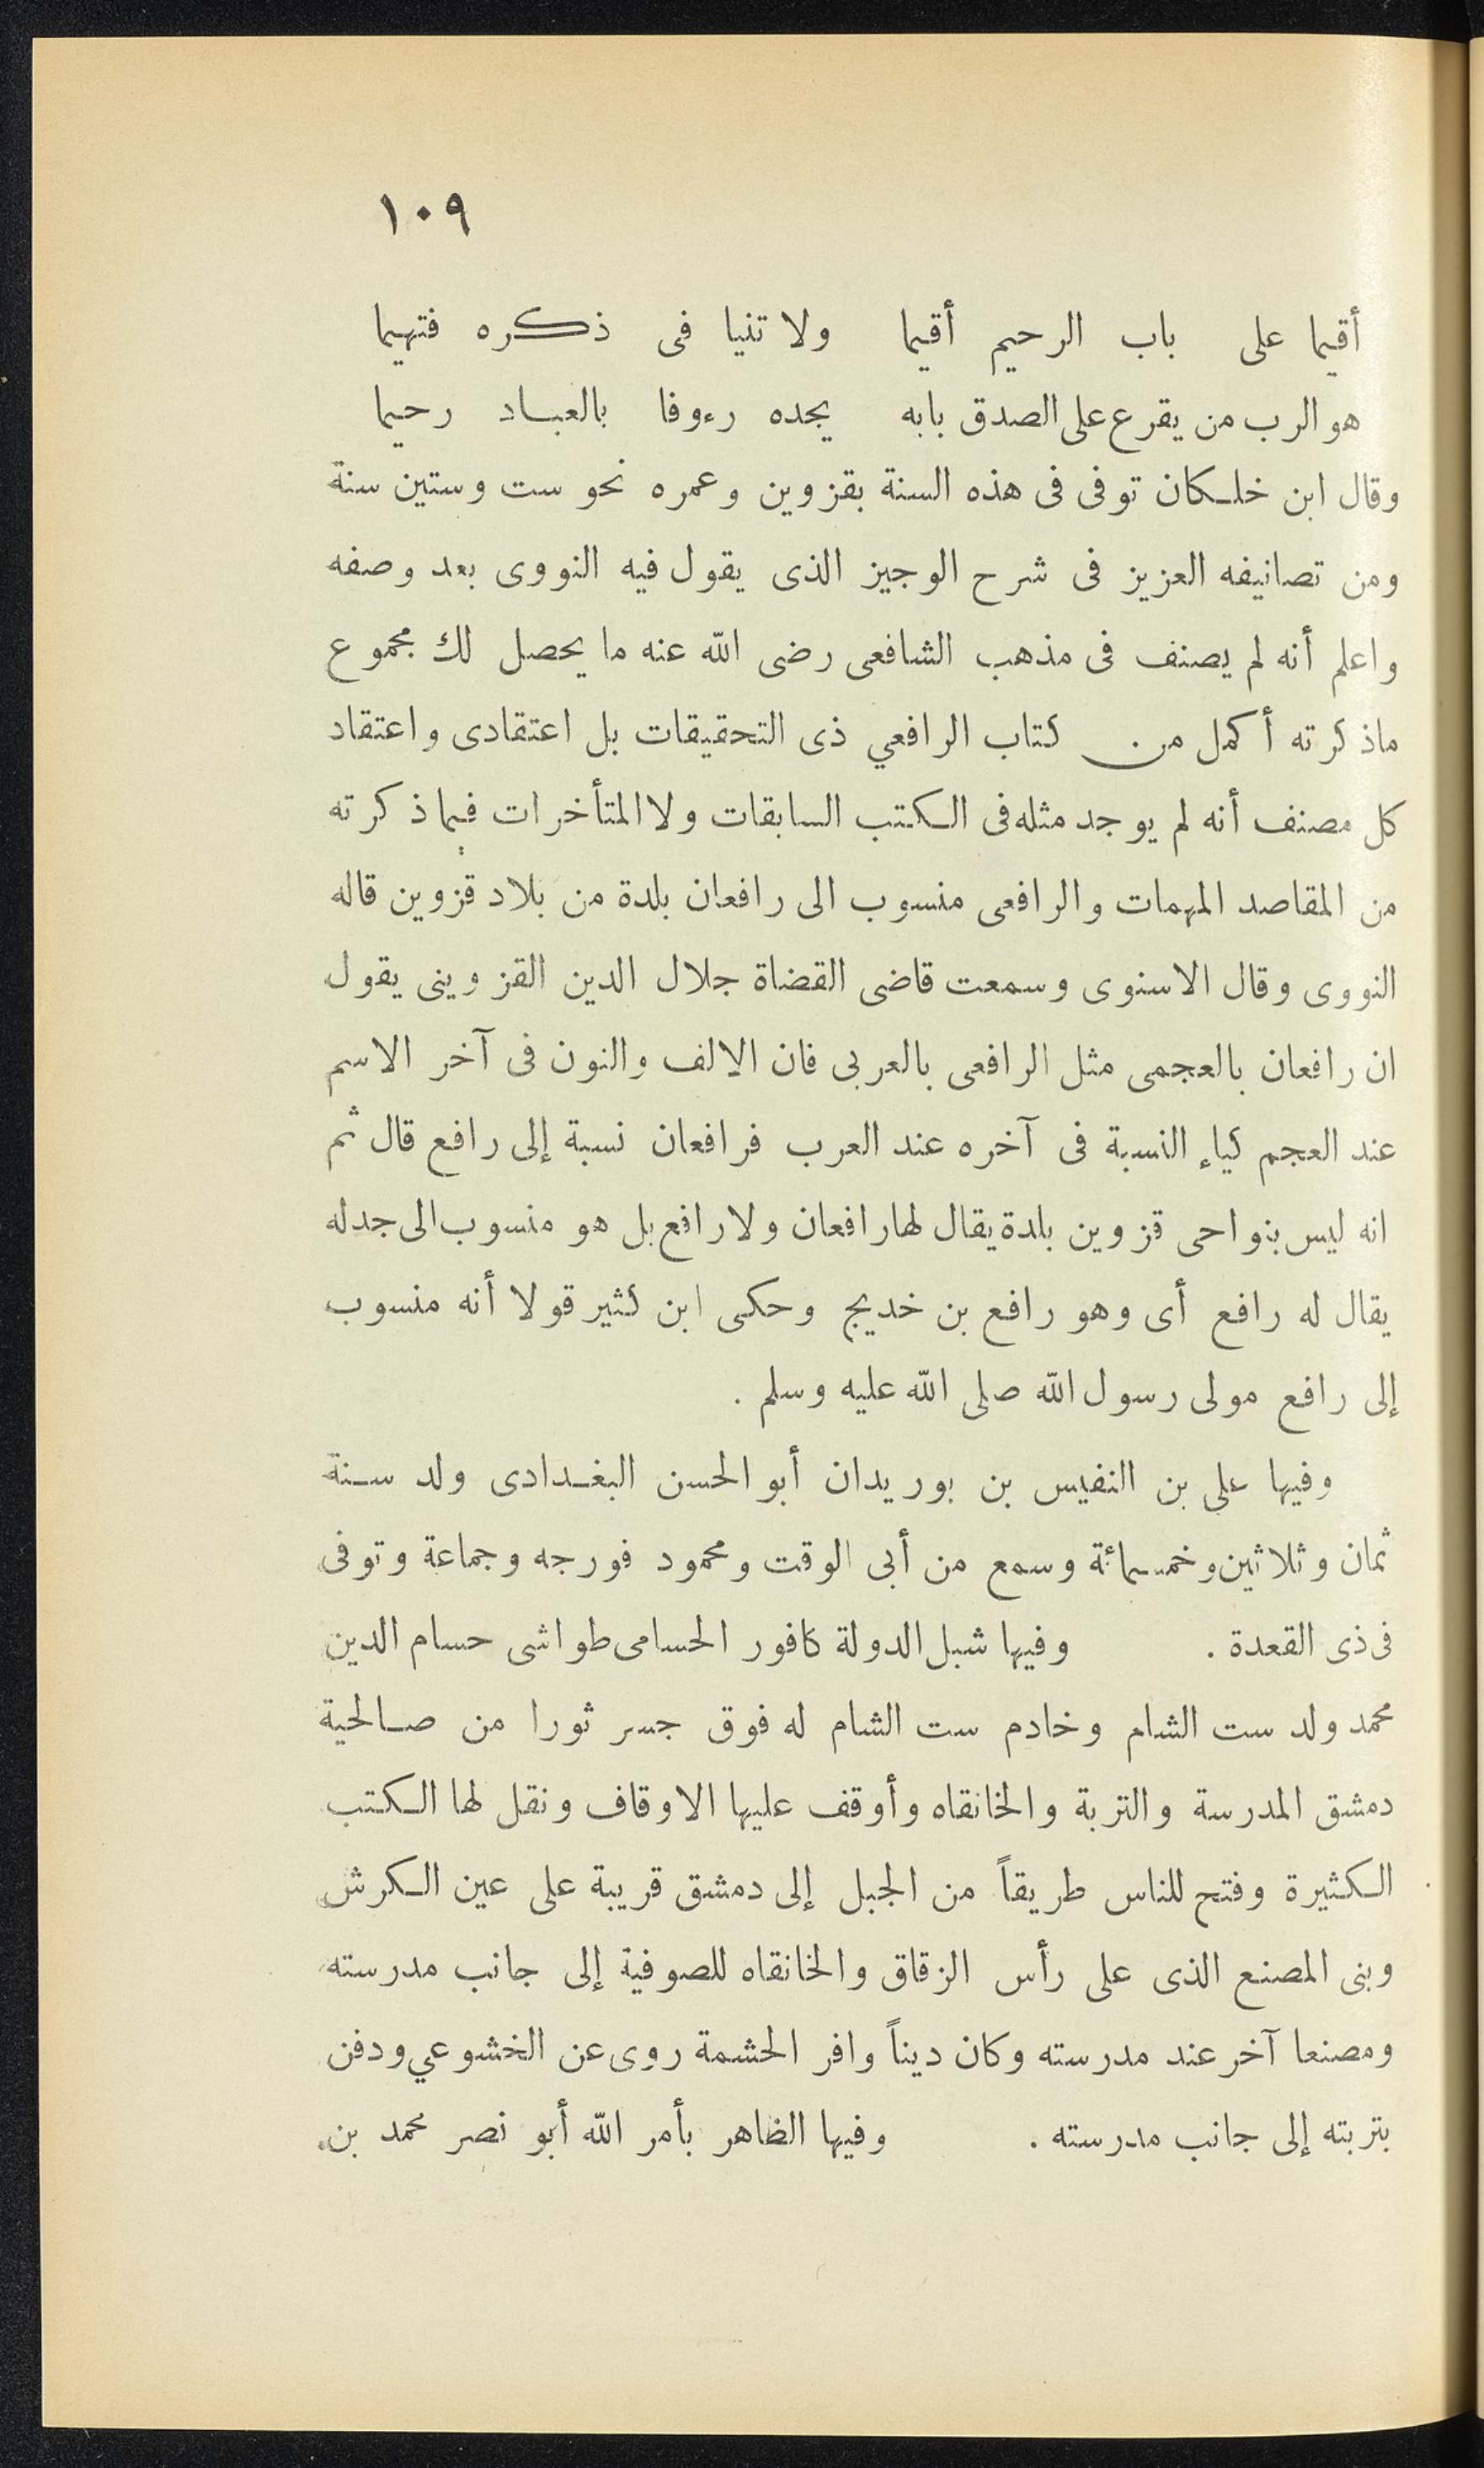 ١٠٩
أقيما على باب الرحيم أقيما ولا تنيا فى ذكره فتهيما
هو الرب من يقرع على الصدق بابه يجده رءوفا بالعباد رحيما
وقال ابن خلكان توفى فى هذه السنة بقزوين وعمره نحو ست وستين سنة
ومن تصانيفه العزيز فى شرح الوجيز الذى يقول فيه النووى بعد وصفه
واعلم أنه لم يصنف فى مذهب الشافعى رضى الله عنه ما يحصل لك مجموع
ماذكرته أكمل من كتاب الرافعي ذى التحقيقات بل اعتقادى واعتقاد
كل مصنف أنه لم يوجد مثله فى الكتب السابقات ولا المتأخرات فيما ذكرته
من المقاصد المهمات والرافعى منسوب الى رافعان بلدة من بلاد قزوين قاله
النووى وقال الاسنوى وسمعت قاضى القضاة جلال الدين القزوينى يقول
ان رافعان بالعجمى مثل الرافعى بالعربى فان الالف والنون فى آخر الاسم
عند العجم كياء النسبة فى آخره عند العرب فرافعان نسبة إلى رافع قال ثم
انه ليس بنواحى قزوين بلدة يقال لها رافعان ولا رافع بل هو منسوب الى جد له
يقال له رافع أى وهو رافع بن خديج وحكى ابن كثير قولا أنه منسوب
إلى رافع مولى رسول الله صلى الله عليه وسلم .
وفيها على بن النفيس بن بوريدان أبو الحسن البغدادى ولد سنة
ثمان وثلاثين وخمسمائة وسمع من أبى الوقت ومحمود فورجه وجماعة وتوفى
فى ذى القعدة . وفيها شبل الدولة كافور الحسامى طواشى حسام الدين
محمد ولد ست الشام وخادم ست الشام له فوق جسر ثورا من صالحية
دمشق المدرسة والتربة والخانقاه وأوقف عليها الاوقاف ونقل لها الكتب
الكثيرة وفتح للناس طريقاً من الجبل إلى دمشق قريبة على عين الكرش
وبنى المصنع الذى على رأس الزقاق والخانقاه للصوفية إلى جانب مدرسته
ومصنعا آخر عند مدرسته وكان ديناً وافر الحشمة روى عن الخشوعي ودفن
بتربته إلى جانب مدرسته . وفيها الظاهر بأمر الله أبو نصر محمد بن